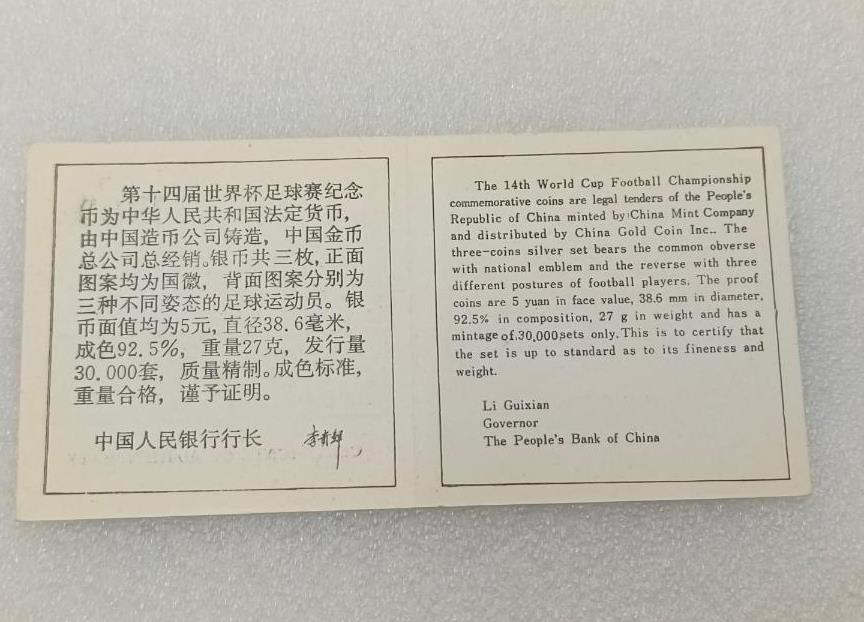 第十四届世界杯足球赛纪念
币为中华人民共和国法定货币，
由中国造币公司铸造，中国金币
总公司总经销。银币共三枚，正面
图案均为国徽，背面图案分别为
三种不同姿态的足球运动员。银
币面值均为5元，直径38.6毫米，
成色92.5%，重量27克，发行量
30.000套，质量精制。成色标准，
重量合格，谨予证明。
中国人民银行行长 李贵鲜
The 14th World Cup Football Championship
commemorative coins are legal tenders of the People's
Republic of China minted by China Mint Company
and distributed by China Gold Coin Inc.. The
three-coins silver set bears the common obverse
with national emblem and the reverse with three
different postures of football players. The proof
coins are 5 yuan in face value, 38.6 mm in diameter,
92.5% in composition, 27 g in weight and has a
mintage of 30,000 sets only. This is to certify that
the set is up to standard as to its fineness and
weight.
Li Guixian
Governor
The People's Bank of China